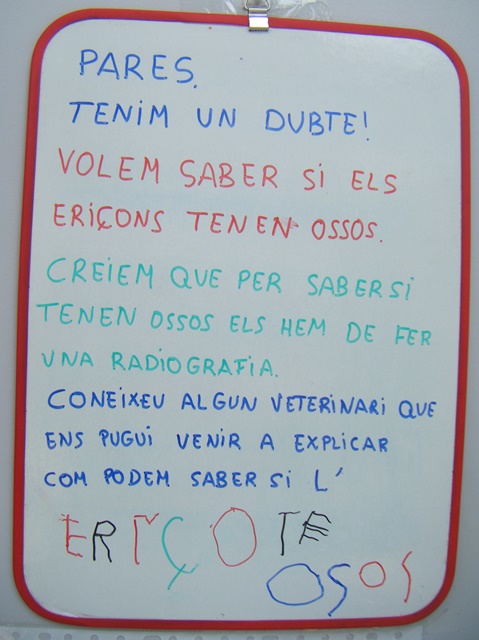 PARES.
TENIM UN DUBTE!
VOLEM SABER SI ELS
ERIÇONS TENEN OSSOS.
CREIEM QUE PER SABER SI
TENEN OSSOS ELS HEM DE FER
UNA RADIOGRAFIA.
CONEIXEU ALGUN VETERINARI QUE
ENS PUGUI VENIR A EXPLICAR
COM PODEM SABER SI L'
ERIÇO TE
OSOS